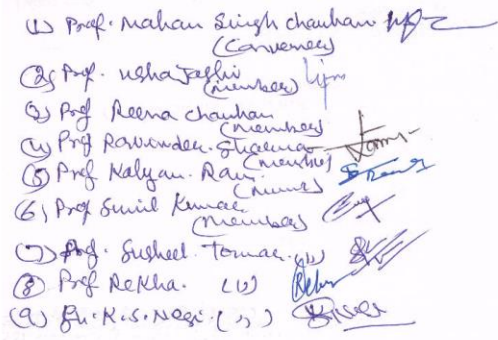 (1) Prof. Mahan Singh chauhan
(Convener)
(2) Prof. Usha Joshi
(member)
(3) Prof Reena chauhan
(member)
(4) Prof Ravinder Sharma
(member)
(5) Prof Kalyan. Ram.
(6) Prof Sunil Kumar
(member)
(7) Prof. Susheel Tomar. (,,)
(8) Prof Rekha. (,,)
(9) Sh. K.S. Negi. (,,)